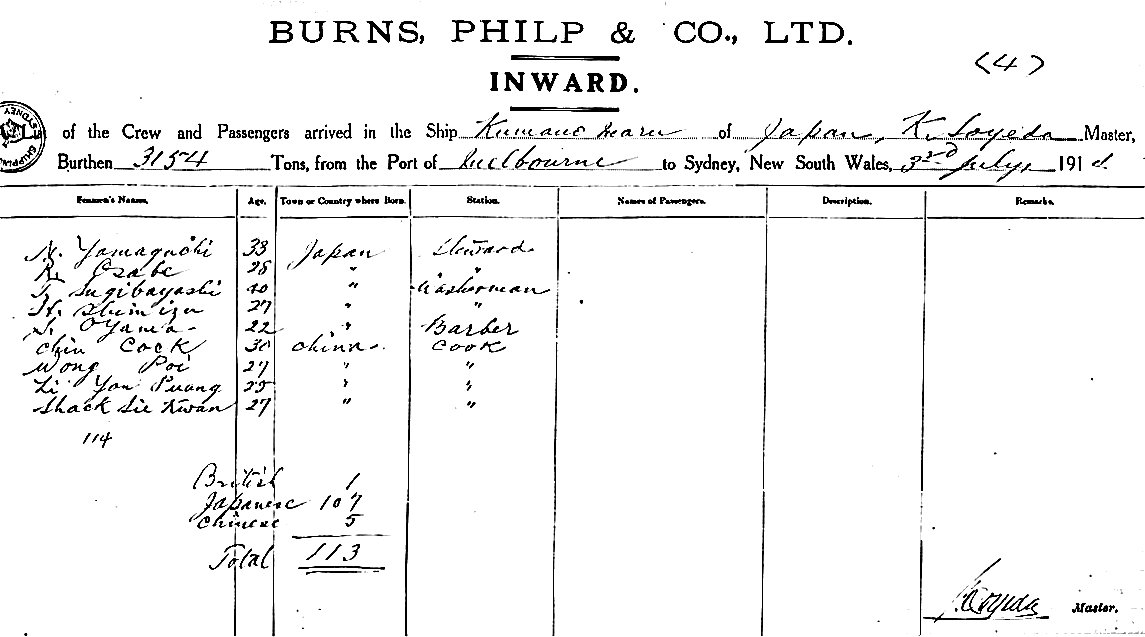 BURNS, PHILP & CO., LTD.
(4)
INWARD.
of the Crew and Passengers arrived in the Ship Kumano Maru of Japan, K. Soyeda Master,
Burthen 3154 Tons, from the Port of Melbourne to Sydney, New South Wales, 3rd July, 191
Seamen's Names. Age. Town or Country where Born. Station. Names of Passengers. Description. Remarks.
Yamaguchi 33 Japan Steward
K. Osabe 28 " "
Sugibayashi 40 " Washerman
H. Shimizu 27 " "
Oyama 22 " Barber
Chin Cock 30 China Cook
Wong Poi 27 " "
Li Yon Puang 25 " "
Shack Sie Kwan 27 " "
114
British 1
Japanese 107
Chinese 5
Total 113
Soyeda Master.